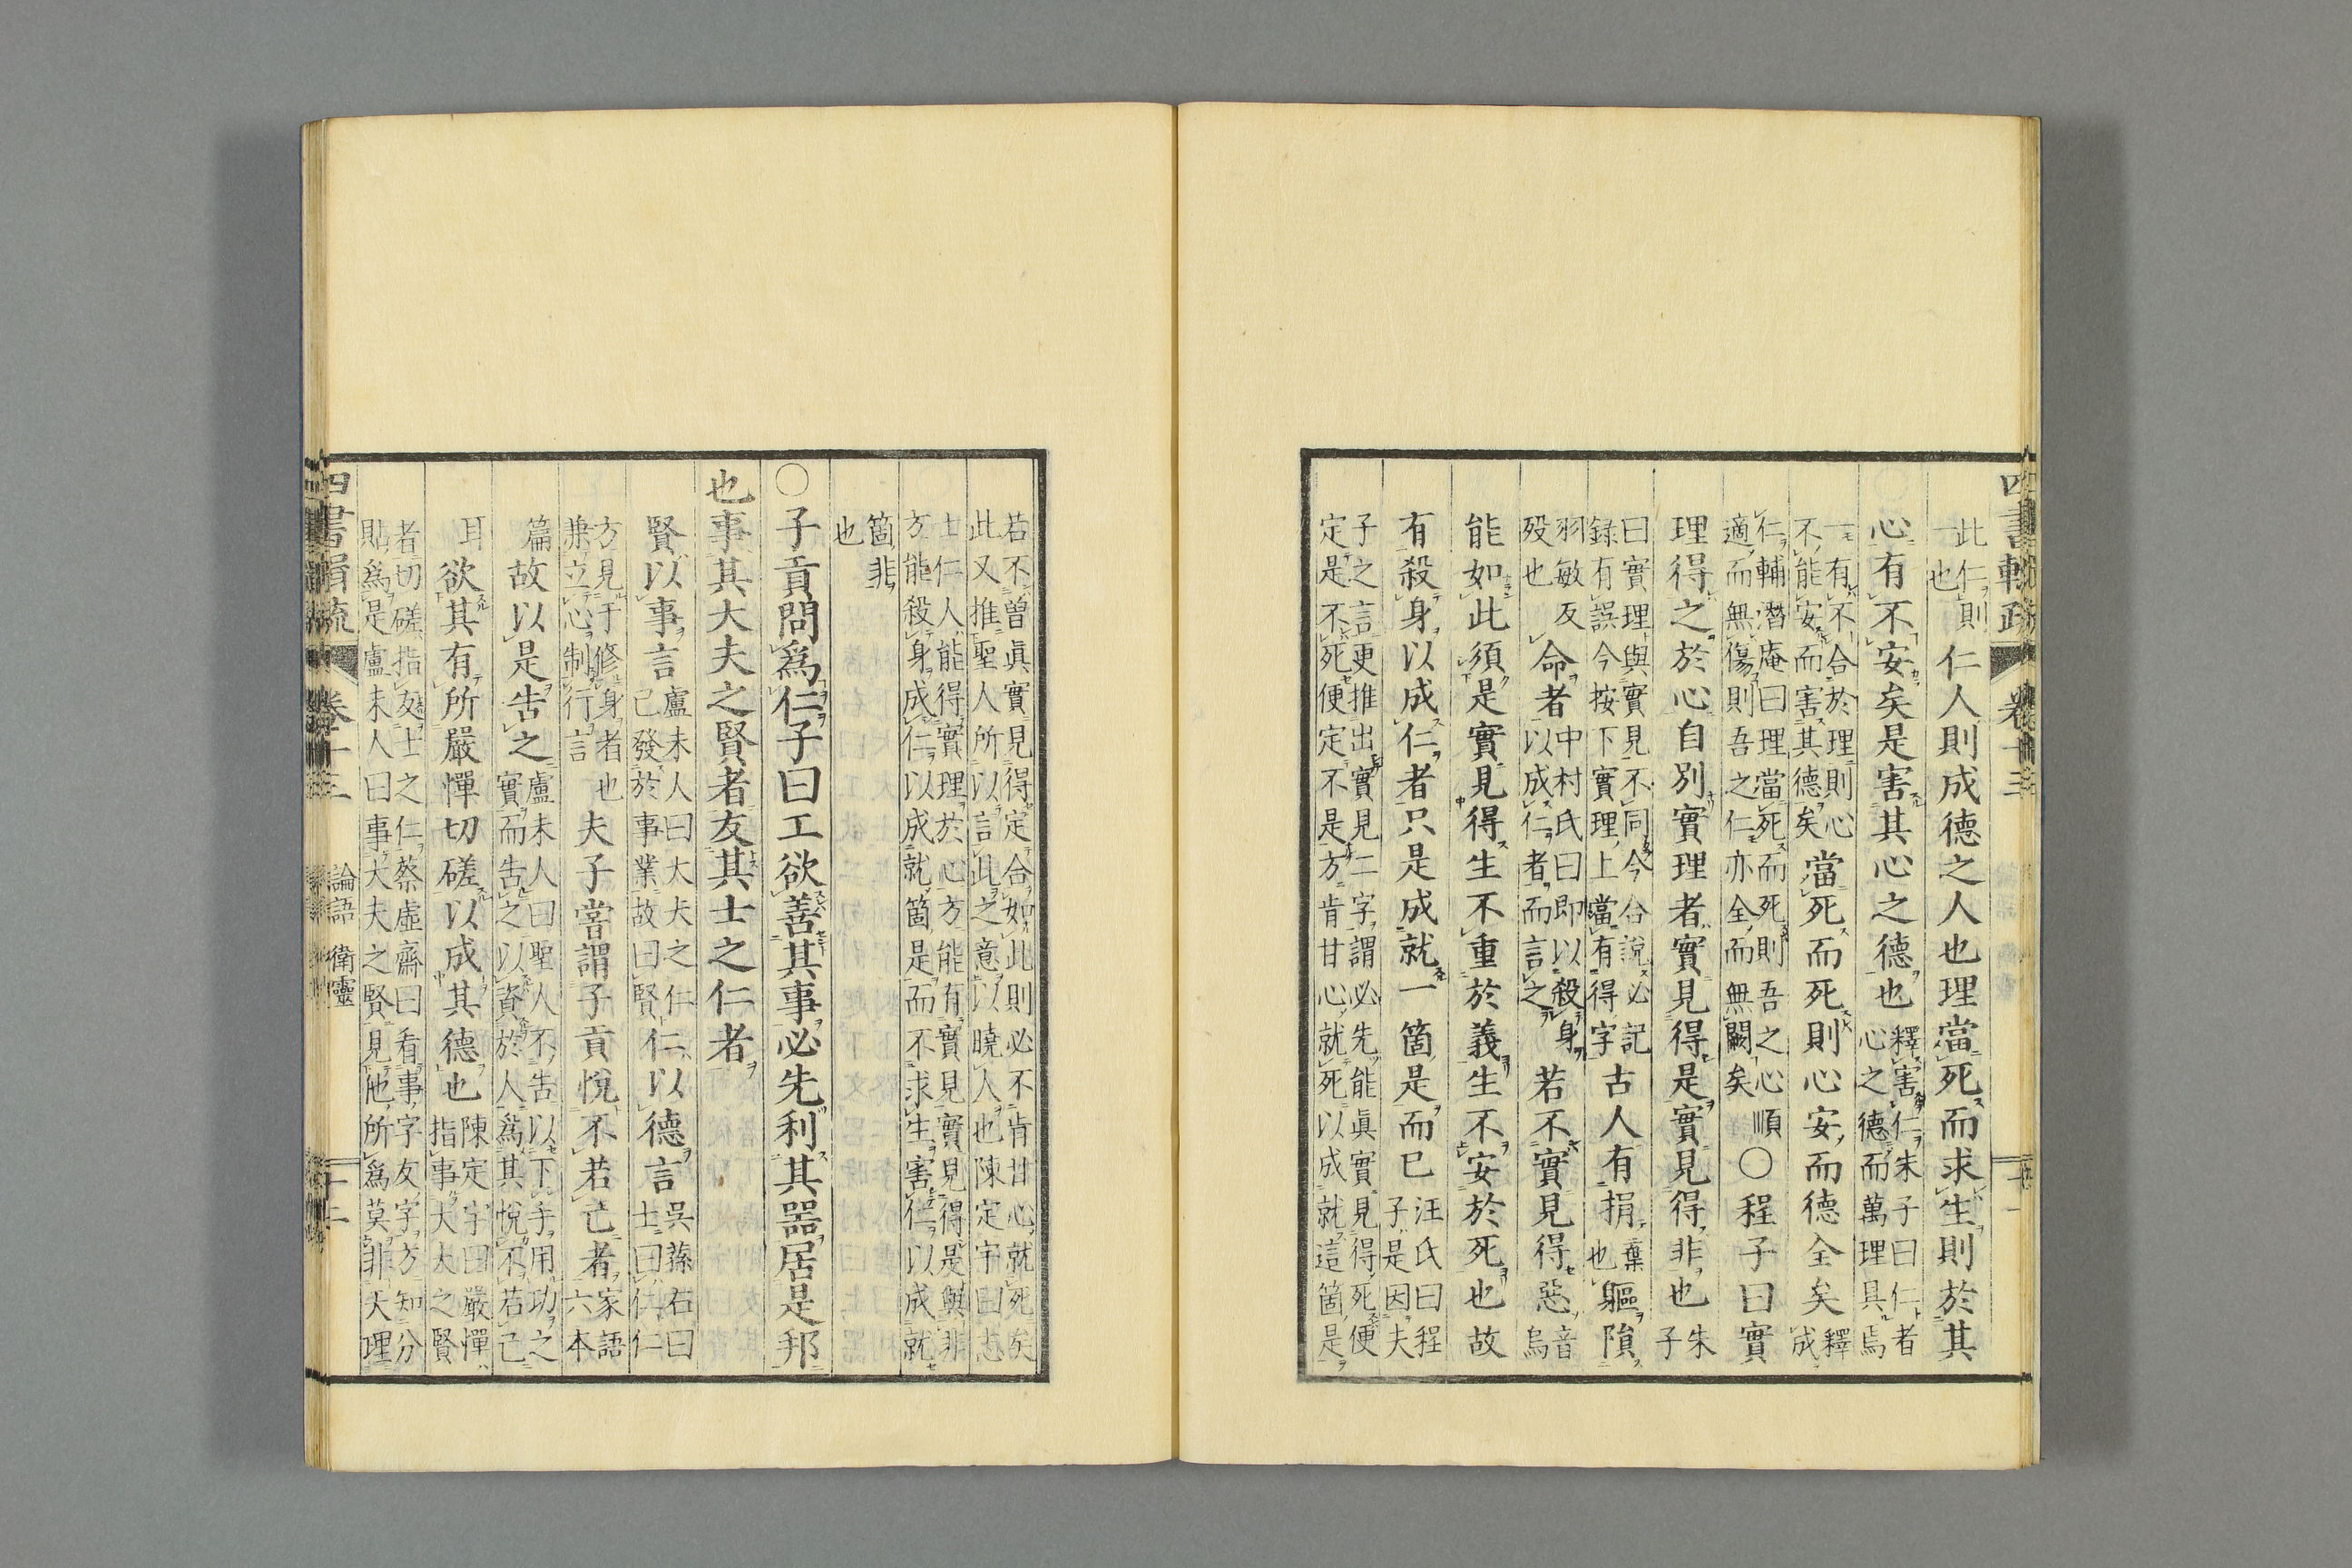 四書輯疏 卷十三
此仁則
一也
仁人則成德之人也理當死而求生則於其
心有不安矣是害其心之德也
釋害仁朱子曰仁者
心之德而萬理具焉
一有不合於理則心
不能安而害其德矣
當死而死則心安而德全矣
釋
成
仁輔潛庵曰理當死而死則吾之心順
適而無傷則吾之仁亦全而無闕矣
○程子曰實
理得之於心自別實理者實見得是實見得非也
朱
子
曰實理與實見不同今合說必記
錄有誤今按下實理上當有得字
古人有捐
棄
也
軀隕
羽敏反
歿也
命者
中村氏曰即以殺身
以成仁者而言之
若不實見得惡
音
烏
能如此須是實見得生不重於義生不安於死也故
有殺身以成仁者只是成就一箇是而已
汪氏曰程
子是因夫
子之言更推出實見二字謂必先能眞實見得死便
定是不死便定不是方肯甘心就死以成就這箇是
若不曾眞實見得定合如此則必不肯甘心就死矣
此又推聖人所以言此之意以曉人也陳定宇曰志
士仁人能得實理於心方能有實見實見得是與非
方能殺身成仁以成就箇是而不求生害仁以成就
箇非
也
○子貢問爲仁子曰工欲善其事必先利其器居是邦
也事其大夫之賢者友其士之仁者
賢以事言
盧未人曰大夫之仁
己發於事業故曰賢
仁以德言
吳蓀右曰
士曰仁仁
方見于修身者也
兼立心制行言
夫子嘗謂子貢悅不若己者
家語
六本
篇
故以是告之
盧未人曰聖人不告以下手用功之
實而告之以資於人爲其悅不若己
耳
欲其有所嚴憚切磋以成其德也
陳定宇曰嚴憚
指事大夫之賢
者切磋指友士之仁蔡虛齋曰看事字友字方知分
貼爲是盧未人曰事大夫之賢見他所爲莫非天理
四書輯疏 卷十三 論語 衛靈 十二